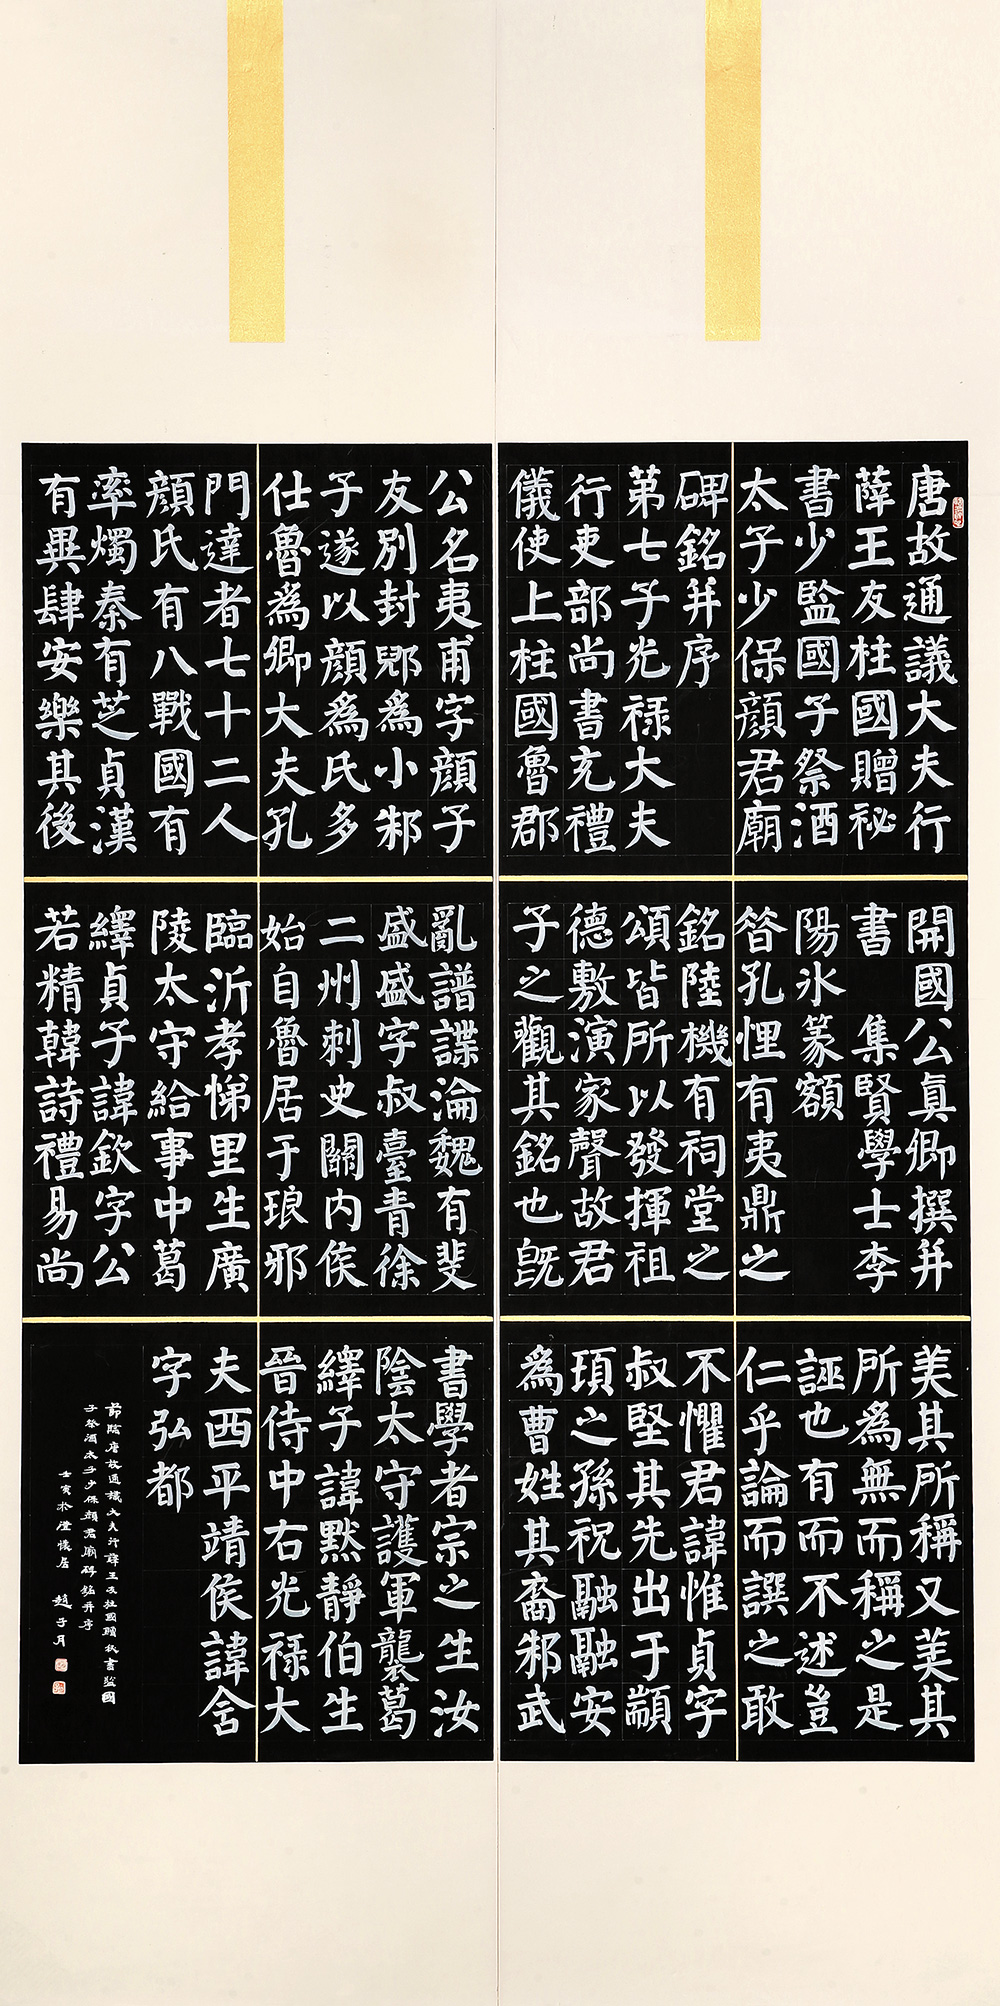 唐故通議大夫行
薛王友柱國贈祕
書少監國子祭酒
太子少保顏君廟
碑銘并序
第七子光祿大夫
行吏部尚書充禮
儀使上柱國魯郡
開國公真卿撰并
書 集賢學士李
陽冰篆額
昝孔悝有夷鼎之
銘陸機有祠堂之
頌皆所以發揮祖
德敷演家聲故君
子之觀其銘也旣
美其所稱又美其
所為無而稱之是
誣也有而不述豈
仁乎論而譔之敢
不懼君諱惟貞字
叔堅其先出于顓
頊之孫祝融融安
為曹姓其裔邾武
公名夷甫字顏子
友別封郳為小邾
子遂以顏為氏多
仕魯為卿大夫孔
門達者七十二人
顏氏有八戰國有
率燭秦有芝貞漢
有異肆安樂其後
亂譜諜淪魏有斐
盛盛字叔臺青徐
二州刺史關內侯
始自魯居于琅邪
臨沂孝悌里生廣
陵太守給事中葛
繹貞子諱欽字公
若精韓詩禮易尚
書學者宗之生汝
陰太守護軍襲葛
繹子諱默靜伯生
晉侍中右光祿大
夫西平靖侯諱含
字弘都
節臨唐故通議大夫行薛王友柱國贈秘書監國
子祭酒太子少保顏君廟碑銘并序
壬寅秋澄懷居 趙子月